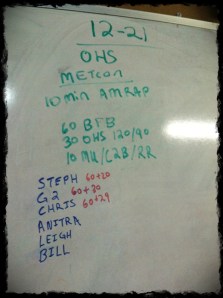 12-21
OHS
METCON
10 min AMRAP
60 BFB
30 OHS 120/90
10 MU/C2B/RR
STEPH 60+20
G2 60+30
CHRIS 60+29
ANITRA
LEIGH
BILL